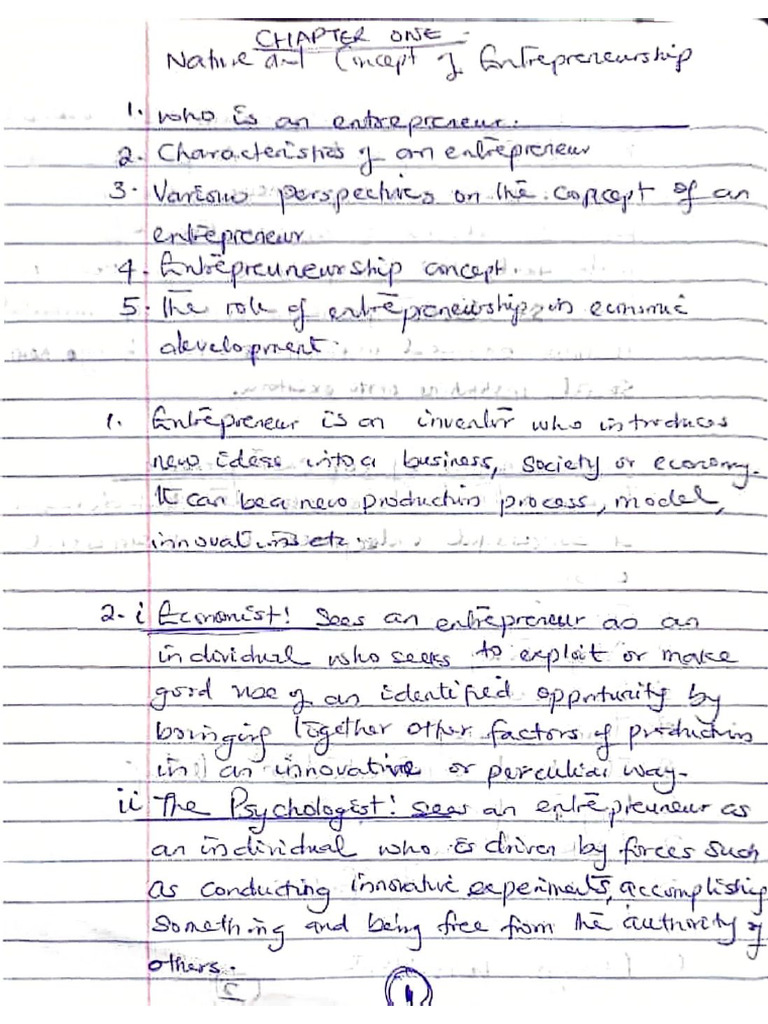 CHAPTER ONE -
Nature and Concept of Entrepreneurship
1. who is an entrepreneur.
2. Characteristics of an entrepreneur
3. Various perspectives on the concept of an
entrepreneur
4. Entrepreuneurship concept.
5. The role of entrepreneurship in economic
development.
1. Entrepreneur is an inventor who introduces
new ideas into a business, society or economy.
It can be a new production process, model,
innovations etc.
2. i Economist: Sees an entrepreneur as an
individual who seeks to exploit or make
good use of an identified opportunity by
bringing together other factors of production
in an innovative or perculiar way.
ii The Psychologist: sees an entrepreuneur as
an individual who is driven by forces such
as conducting innovative experiments, accomplishing
something and being free from the authority of
others.
1